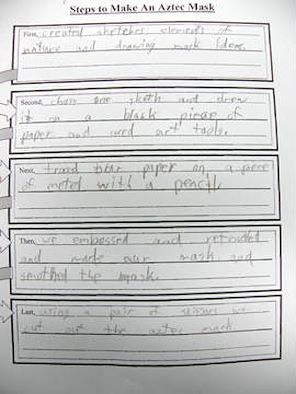 Steps to Make An Aztec Mask
First, created sketches elements of
nature and drawing mask Ideas.
Second, chose one sketh and drew
it on a black pieace of
paper and used art tools.
Next, traced thar paper on a piece
of metel with a pencil.
Then, we embossed and retouded
and made our mask and
smothed the mask.
Last, using a pair of sissors we
cut out the aztec mask